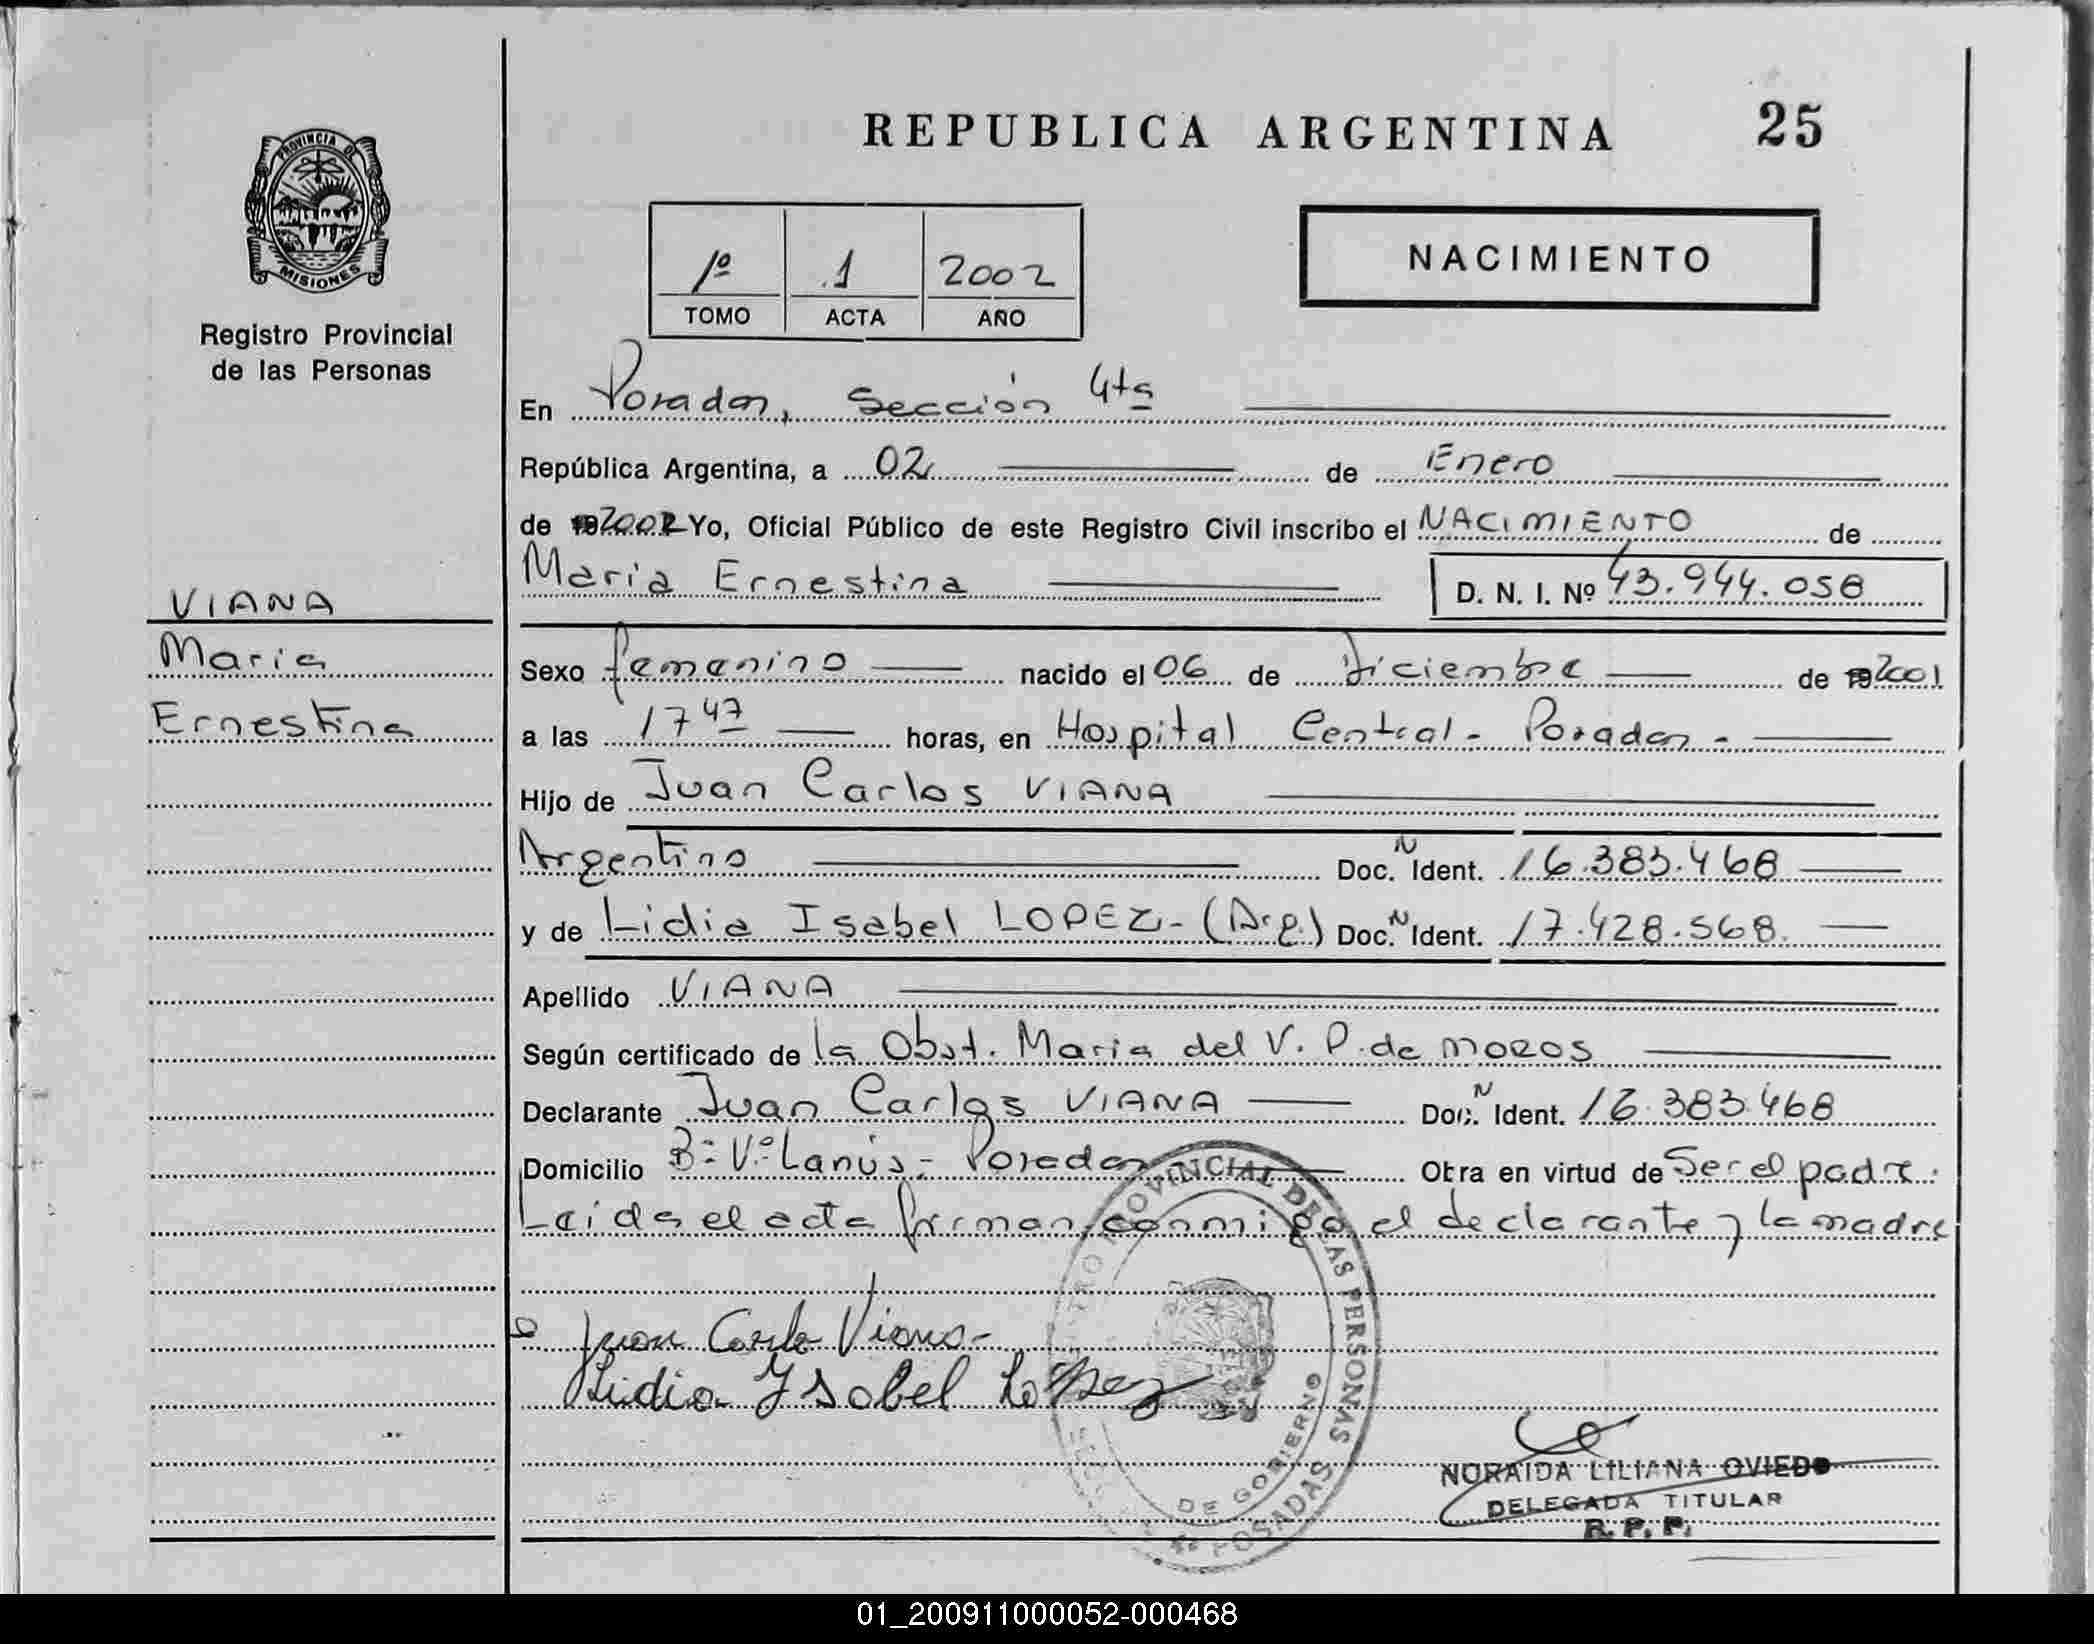 REPUBLICA ARGENTINA 25
PROVINCIA DE
MISIONES
Registro Provincial
de las Personas
1º .1 2002
TOMO ACTA AÑO
NACIMIENTO
En Posadas, Sección 4ta
República Argentina, a 02 de Enero
de 2002 Yo, Oficial Público de este Registro Civil inscribo el NACIMIENTO de
Maria Ernestina D. N. I. Nº 43.944.058
VIANA
Maria
Ernestina
Sexo femenino nacido el 06 de Diciembre de 2001
a las 17 47 horas, en Hospital Central - Posadas -
Hijo de Juan Carlos VIANA
Argentino Doc. N Ident. 16.383.468
y de Lidia Isabel LOPEZ - (Arg.) Doc. N Ident. 17.428.568.
Apellido VIANA
Según certificado de la Obst. Maria del V. P. de MOROS
Declarante Juan Carlos VIANA Doc. N Ident. 16.383.468
Domicilio Bº Vº Lanús - Posadas Otra en virtud de Ser el padre.
Leida el acta firman conmigo el declarante y la madre
Juan Carlo Viana -
Lidia Ysabel López
PROVINCIAL DE LAS PERSONAS
DE GOBIERNO
POSADAS
NORAIDA LILIANA OVIEDO
DELEGADA TITULAR
R. P. P.
01_200911000052-000468